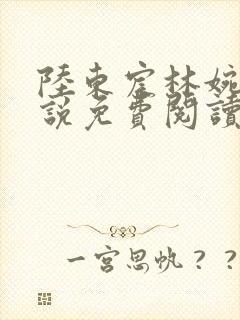 陸東宦林婉
說免費閱讀
一宮思帆？？